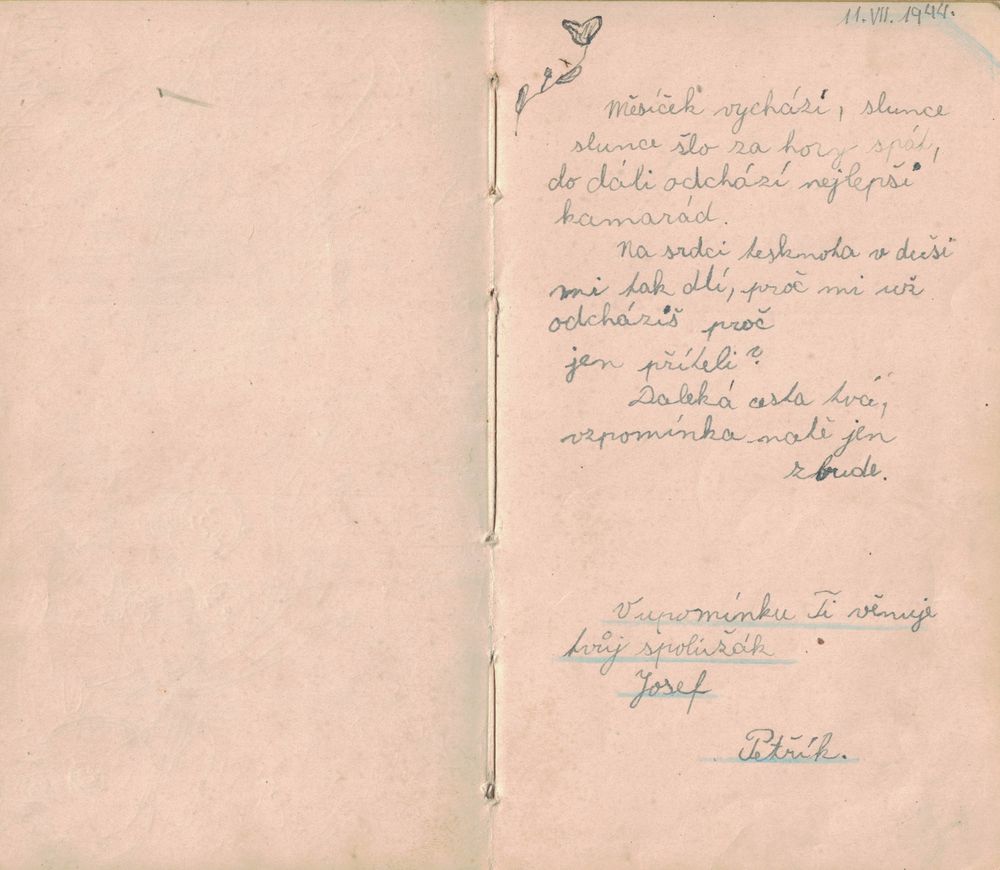 11. VII. 1944.
Měsíček vychází, slunce
slunce šlo za hory spát,
do dáli odchází nejlepší
kamarád.
Na srdci tesknota v duši
mi tak dlí, proč mi už
odcházíš proč
jen příteli?
Daleká cesta tvá,
vzpomínka natě jen
zbude.
V upomínku Ti věnuje
tvůj spolužák
Josef
Petřík.